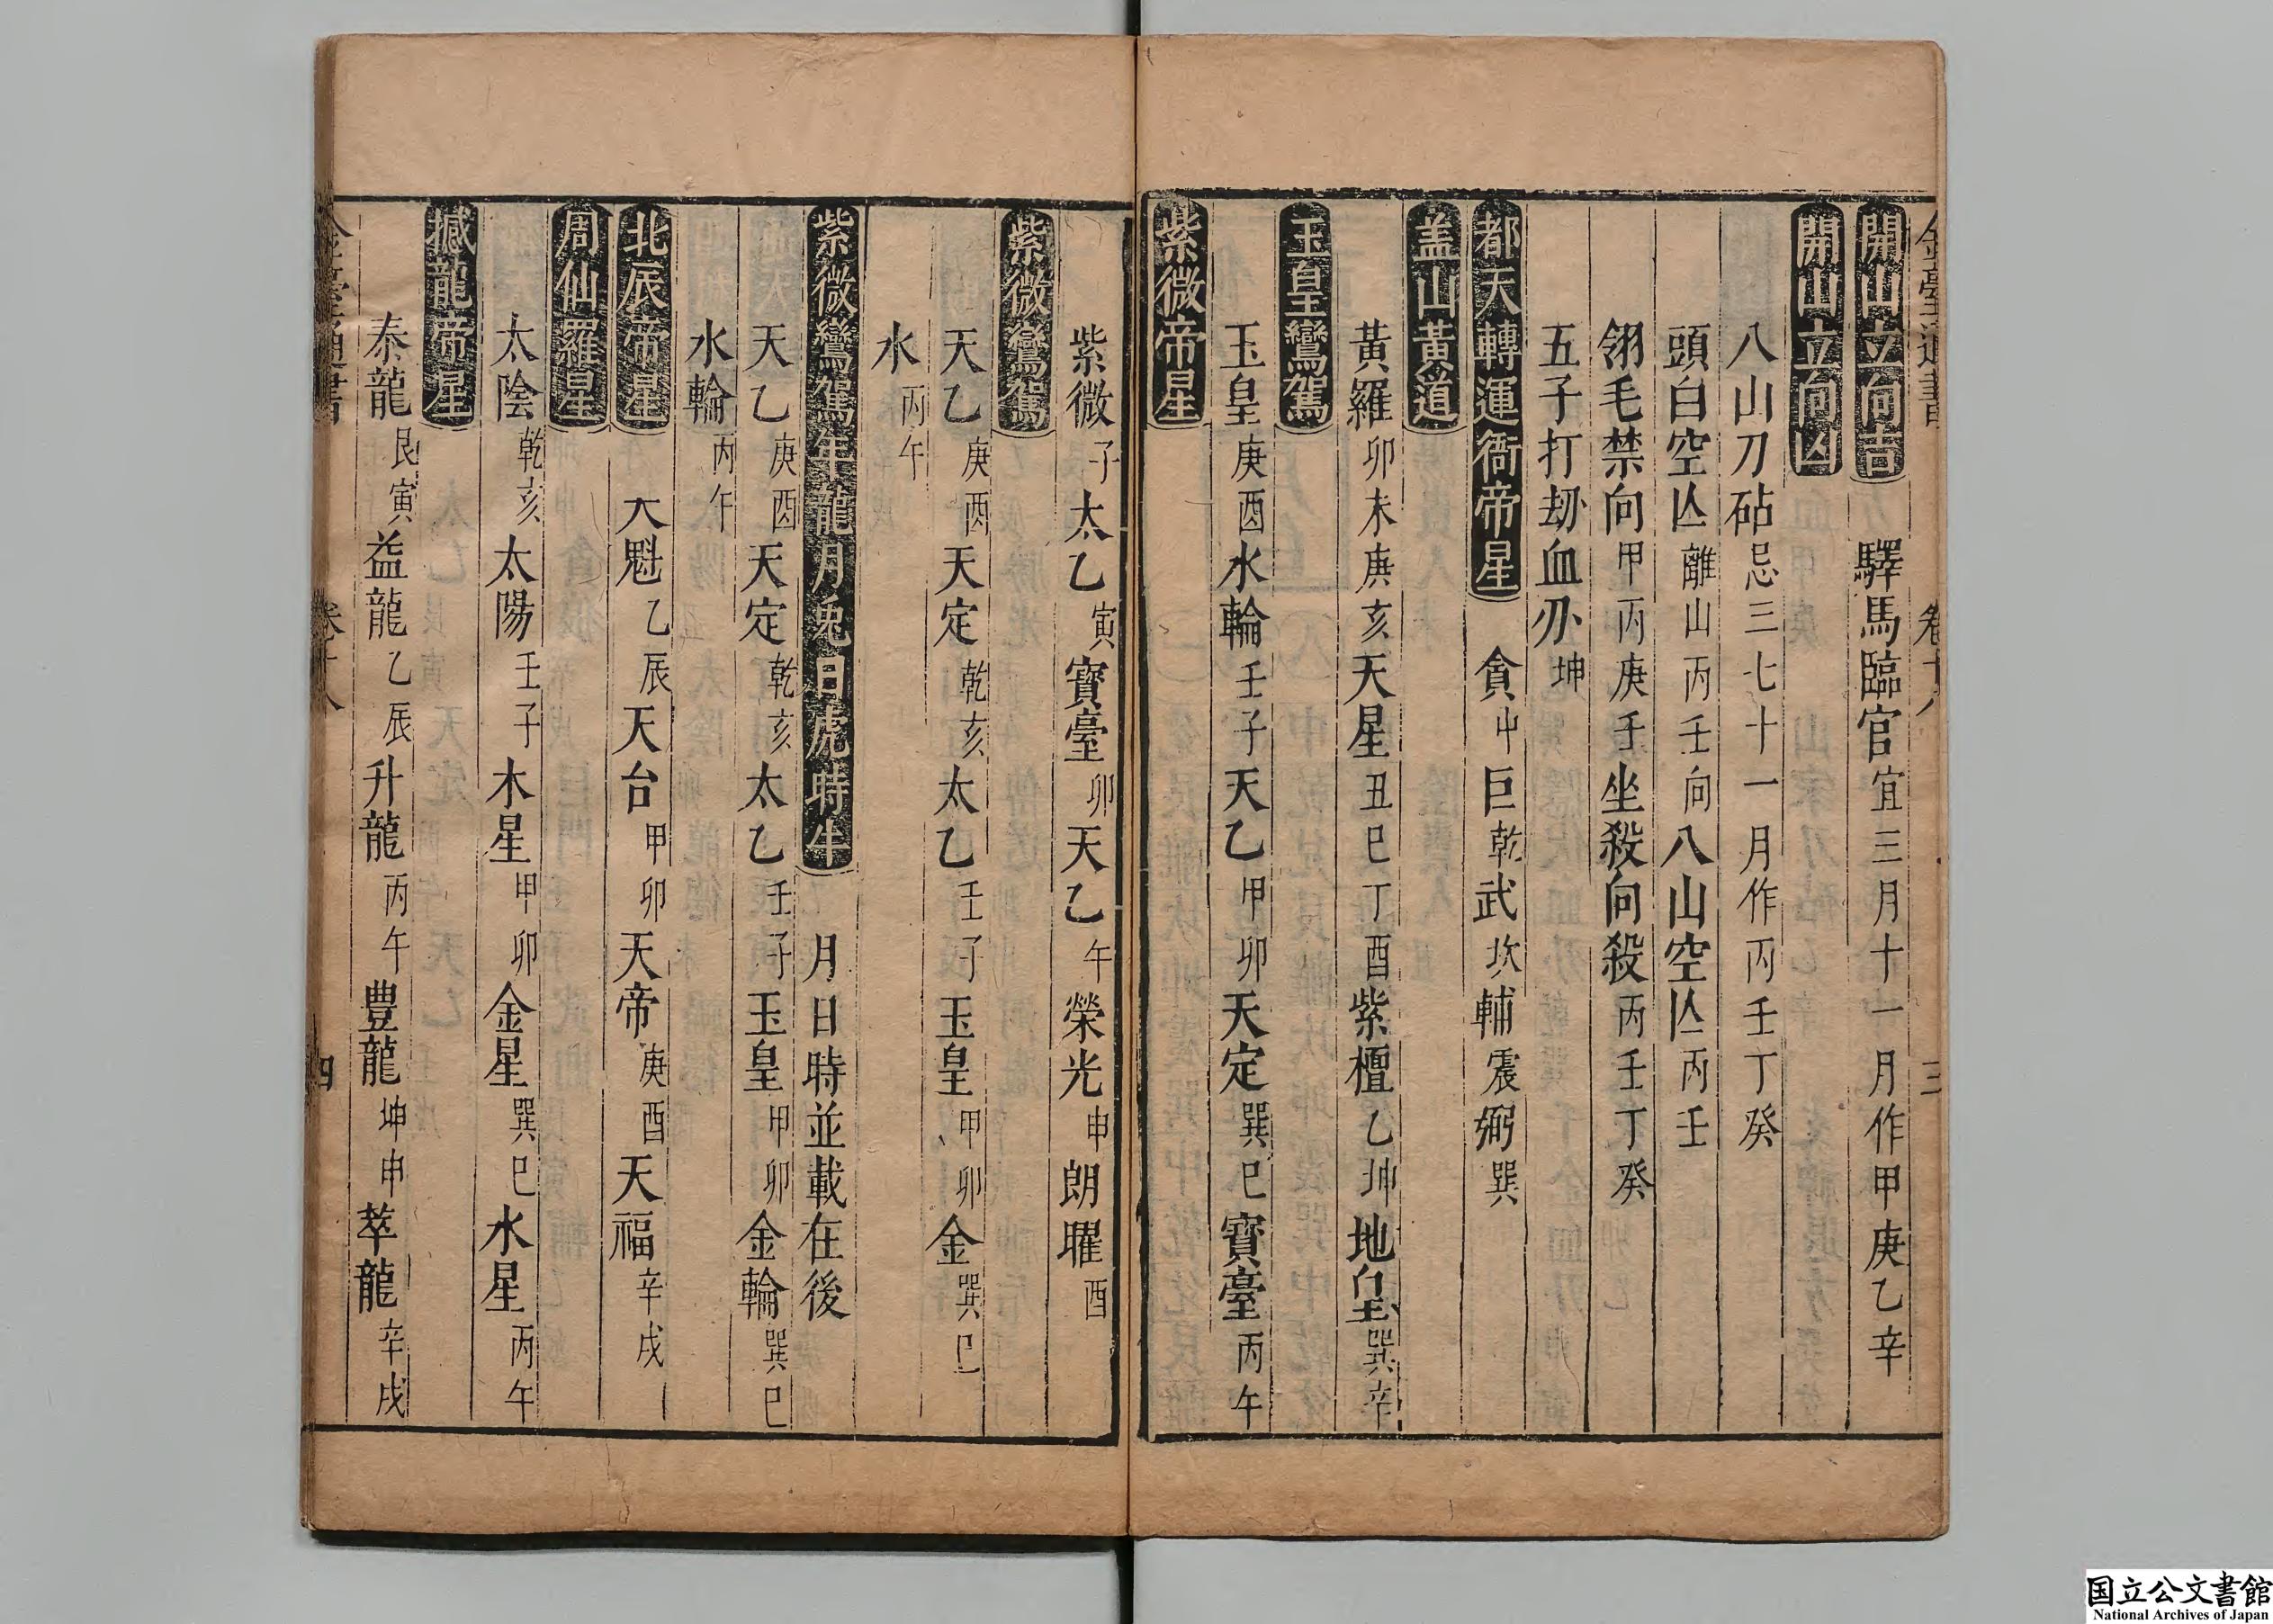 開山立向吉 驛馬臨官宜三月十一月作甲庚乙辛
開山立向凶
八山刀砧忌三七十一月作丙壬丁癸
頭白空亾離山丙壬向八山空亾丙壬
翎毛禁向甲丙庚壬坐殺向殺丙壬丁癸
五子打刼血刃坤
都天轉運衙帝星 貪中巨乾武坎輔震弼巽
盖山黄道
黃羅卯未庚亥天星丑巳丁酉紫檀乙坤地皇巽辛
玉皇鸞駕
玉皇庚酉水輪壬子天乙甲卯天定巽巳寳臺丙午
紫微帝星
紫微子太乙寅寳臺卯天乙午榮光申朗曜酉
紫微鸞駕
天乙庚酉天定乾亥太乙壬子玉皇甲卯金巽巳
水丙午
紫微鸞駕年龍月兎日虎時牛 月日時並載在後
天乙庚酉天定乾亥太乙壬子玉皇甲卯金輪巽巳
水輪丙午
北辰帝星 天魁乙辰天台甲卯天帝庚酉天福辛戌
周仙羅星
太陰乾亥太陽壬子木星甲卯金星巽巳水星丙午
撼龍帝星
泰龍艮寅益龍乙辰升龍丙午豊龍坤申萃龍辛戌
卷十八
四
国立公文書館
National Archives of Japan